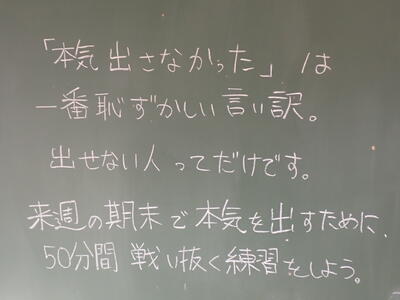 「本気出さなかった」は
一番恥ずかしい言い訳。
出せない人ってだけです。
来週の期末で本気を出すために、
50分間戦い抜く練習をしよう。